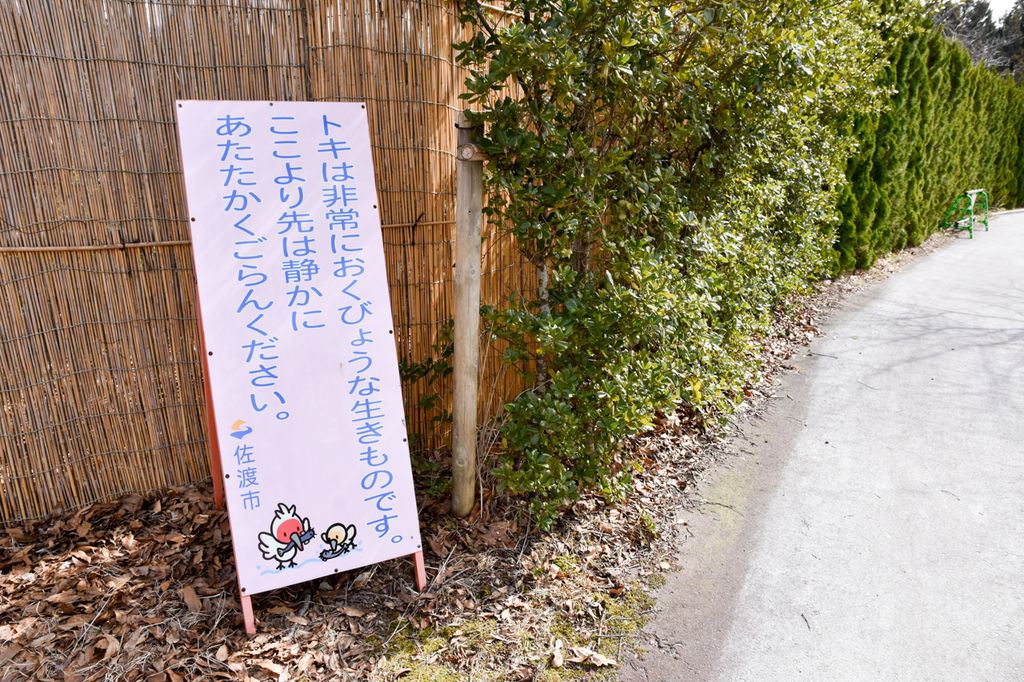 トキは非常におくびょうな生きものです。
ここより先は静かに
あたたかくごらんください。
佐渡市